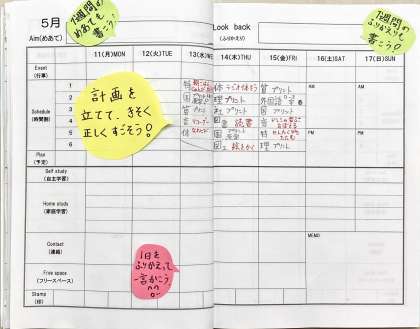 5月
1週間の
めあても
書こう!
Look back
(ふりかえり)
1週間の
ふりかえりも
書こう!
Aim(めあて)
11(月)MON
12(火)TUE
13(水)WE
14(木)THU
15(金)FRI
16(土)SAT
17(日)SUN
Event
(行事)
Schedule
(時間割)
1
2
3
4
5
6
計画を
立てて、きそく
正しくすごそう!
AM
AM
PM
PM
体 ラジオ体そう
理 プリント
社 プリント
読書
図工 絵をかく
プリント
外国語
プリント
理 プリント
Plan
(予定)
Self study
(自主学習)
Home study
(家庭学習)
Contact
(連絡)
MEMO
1日を
ふりかえって
一言かこう
Free space
(フリースペース)
Stamp
(印)